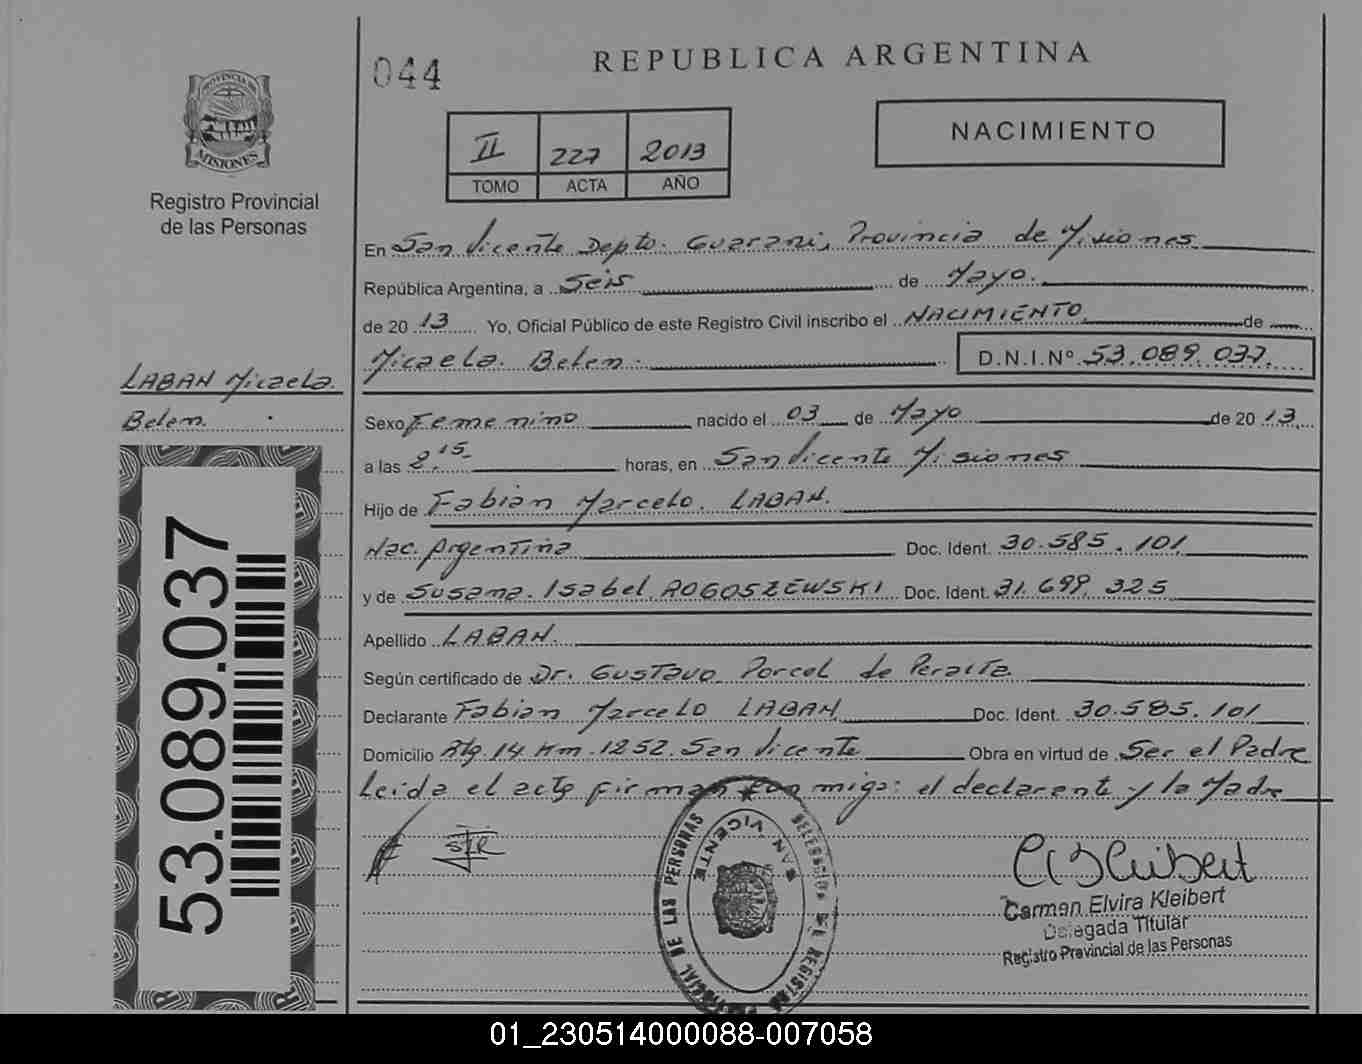 044
REPUBLICA ARGENTINA
PROVINCIA DE
MISIONES
Registro Provincial
de las Personas
II 227 2013
TOMO ACTA AÑO
NACIMIENTO
En San Vicente Depto. Guarani, Provincia de Misiones
República Argentina, a Seis de Mayo.
de 2013 Yo, Oficial Público de este Registro Civil inscribo el NACIMIENTO de
Micaela Belen. D.N.I.Nº 53.089.037
LABAN Micaela
Belen.
Sexo Femenino nacido el 03 de Mayo de 2013.
a las 2.15- horas, en San Vicente Misiones
Hijo de Fabian Marcelo. LABAN.
Nac. Argentina Doc. Ident. 30.585.101
y de Susana Isabel ROGOSZEWSKI Doc. Ident. 31.699.325
Apellido LABAN.
Según certificado de Dr. Gustavo Porcel de Peralta.
Declarante Fabian Marcelo LABAN Doc. Ident. 30.585.101
Domicilio Rtq. 14 Km. 1252. San Vicente Obra en virtud de Ser el Padre
Leida el acta firman conmigo: el declarante y la Madre
53.089.037
DELEGACION DEL REGISTRO PROVINCIAL DE LAS PERSONAS
SAN VICENTE
Carmen Elvira Kleibert
Delegada Titular
Registro Provincial de las Personas
01_230514000088-007058